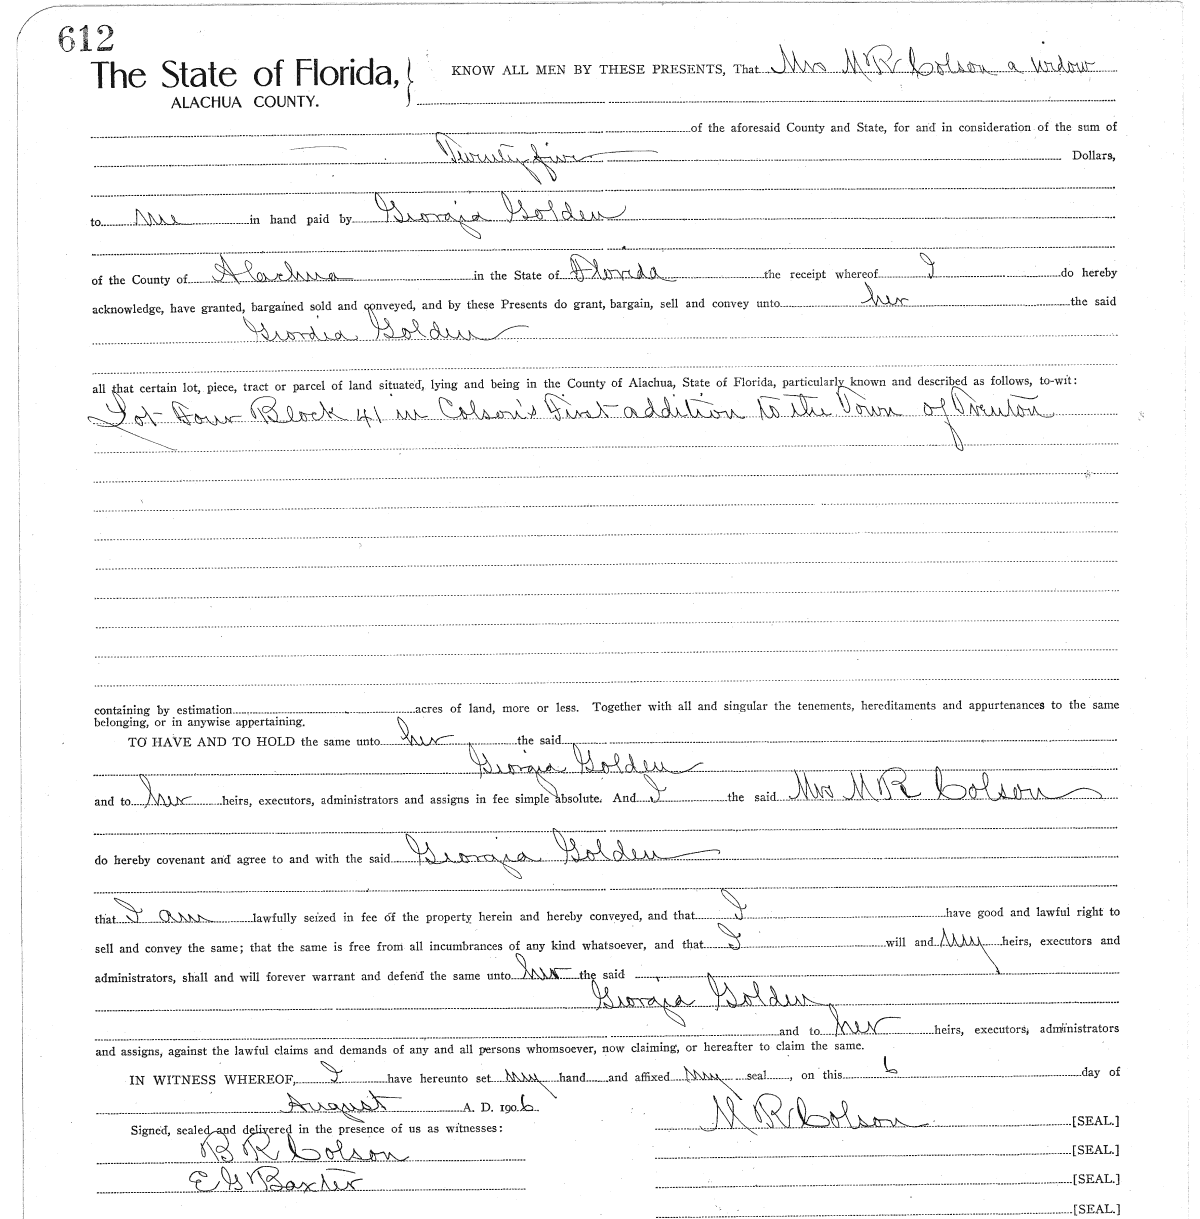 612
The State of Florida,
ALACHUA COUNTY.
KNOW ALL MEN BY THESE PRESENTS, That Mrs M R Colson a widow
of the aforesaid County and State, for and in consideration of the sum of
Twenty five Dollars,
to me in hand paid by Georgia Golden
of the County of Alachua in the State of Florida the receipt whereof I do hereby
acknowledge, have granted, bargained sold and conveyed, and by these Presents do grant, bargain, sell and convey unto her the said
Geordia Golden
all that certain lot, piece, tract or parcel of land situated, lying and being in the County of Alachua, State of Florida, particularly known and described as follows, to-wit:
Lot Four Block 41 in Colson's First addition to the Town of Trenton
containing by estimation acres of land, more or less. Together with all and singular the tenements, hereditaments and appurtenances to the same
belonging, or in anywise appertaining.
TO HAVE AND TO HOLD the same unto her the said
Georgia Golden
and to her heirs, executors, administrators and assigns in fee simple absolute. And I the said Mrs M R Colson
do hereby covenant and agree to and with the said Georgia Golden
that I am lawfully seized in fee of the property herein and hereby conveyed, and that I have good and lawful right to
sell and convey the same; that the same is free from all incumbrances of any kind whatsoever, and that I will and my heirs, executors and
administrators, shall and will forever warrant and defend the same unto her the said
Georgia Golden
and to her heirs, executors, administrators
and assigns, against the lawful claims and demands of any and all persons whomsoever, now claiming, or hereafter to claim the same.
IN WITNESS WHEREOF, I have hereunto set my hand and affixed my seal, on this 6 day of
August A. D. 1906.
Signed, sealed and delivered in the presence of us as witnesses:
M R Colson [SEAL.]
B R Colson [SEAL.]
E G Baxter [SEAL.]
[SEAL.]